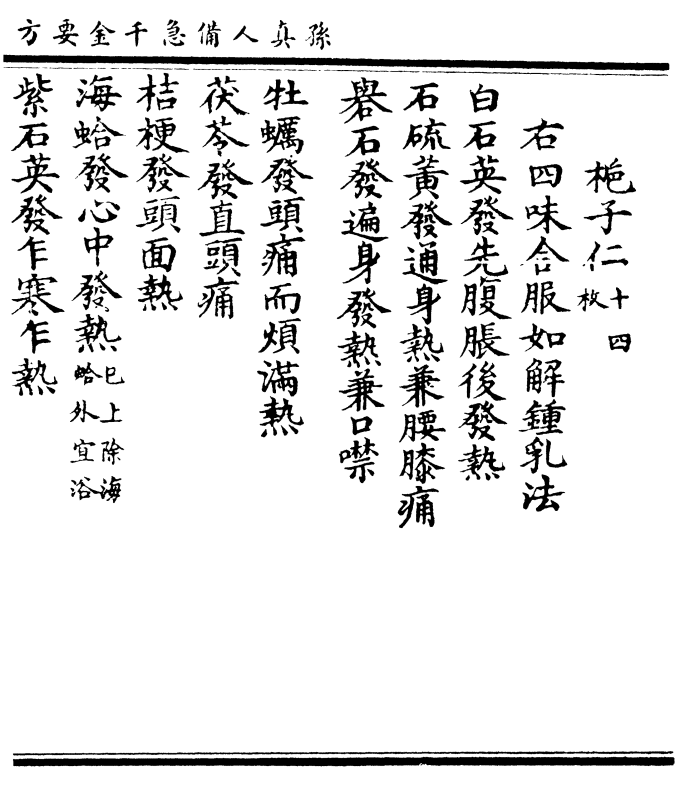 孫真人備急千金要方
梔子仁十四枚
右四味合服如解鍾乳法
白石英發先腹脹後發熱
石硫黃發通身熱兼腰膝痛
礜石發遍身發熱兼口噤
牡蠣發頭痛而煩滿熱
茯苓發直頭痛
桔梗發頭面熱
海蛤發心中發熱巳上除海蛤外宜浴
紫石英發乍寒乍熱